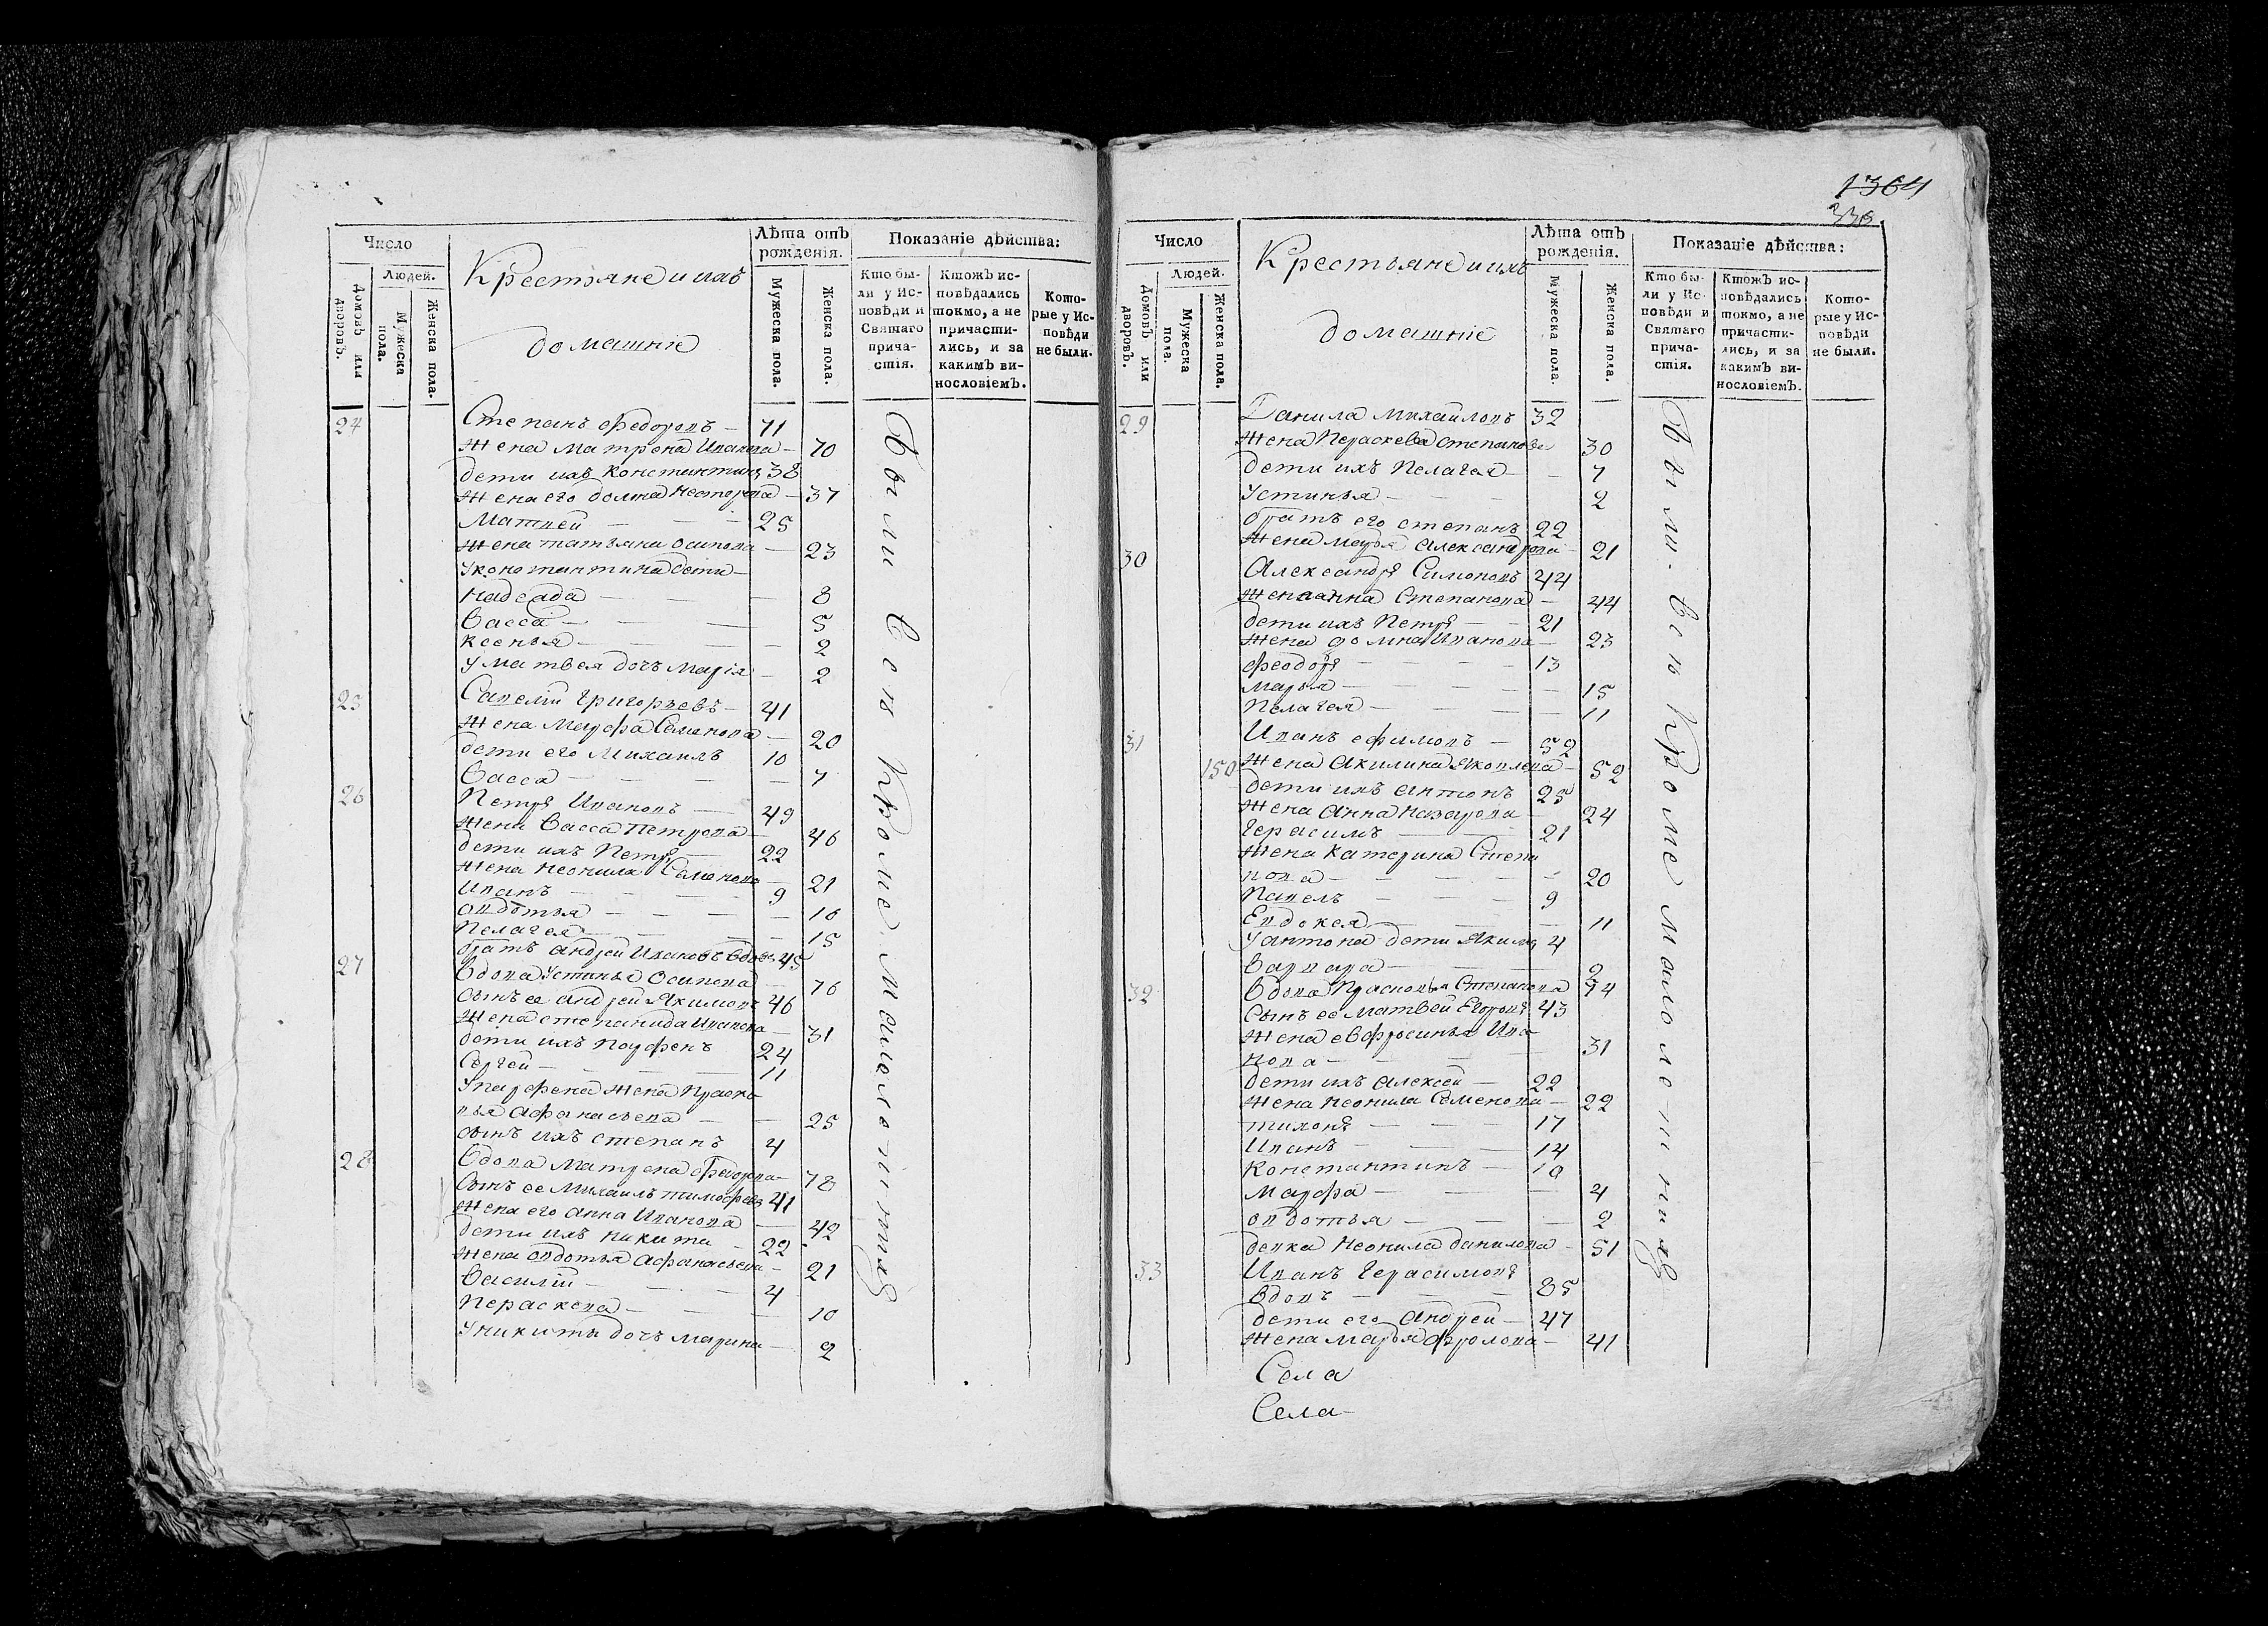 Число
Людей.
Домовъ или дворовъ.
Мужеска пола.
Женска пола.
Крестьяне и ихъ
домашніе
Лѣта отъ рожденія.
Мужеска пола.
Женска пола.
Показаніе дѣйства:
Кто бы-
ли у Ис-
повѣди и
Святаго
прича-
стія.
Ктожъ ис-
повѣдались
токмо, а не
причасти-
лись, и за
какимъ ви-
нословіемъ.
Кото-
рые у Ис-
повѣди
не были.
24 Степанъ Федоровъ — 71
Жена Матрена Иванова — 70
дети ихъ Константинъ 38
Жена его домна Несторова — 37
Матвей — — — 25
Жена татьяна осипова — 23
У константина дети —
Надежда — — — 8
Васса — — — 5
Ксенья — — — 2
У матвея дочь Марія — 2
25 Савелій Григорьевъ — 41
Жена Марфа Семенова — 20
дети его Михаилъ 10
Васса — — — 7
26 Петръ Ивановъ — 49
Жена Васса Петрова — 46
дети ихъ Петръ — 22
Жена Неонила Семенова — 21
Иванъ — — — 9
овдотья — — — 16
Пелагея — — — 15
братъ андрей Ивановъ вдовъ 45
27 Вдова Устинья Осипова — 76
Сынъ ее андрей Якимовъ 46
Жена степанида Иванова — 31
дети ихъ Парфенъ 24
Сергей — — — 11
У парфена жена Праско
вья афанасьева — — 25
сынъ ихъ степанъ 4
28 Вдова Матрена Федорова — 78
Сынъ ее Михаилъ тимофеевъ 41
Жена его анна Иванова — 42
дети ихъ никита — 22
Жена овдотья афанасьева — 21
Василій — — — 4
Пераскева — — — 10
У никиты дочь марина — 2
Были всѣ кроме малолетнихъ
1364
Число
Людей.
Домовъ или дворовъ.
Мужеска пола.
Женска пола.
Крестьяне и ихъ
домашніе
Лѣта отъ рожденія.
Мужеска пола.
Женска пола.
Показаніе дѣйства:
Кто бы-
ли у Ис-
повѣди и
Святаго
прича-
стія.
Ктожъ ис-
повѣдались
токмо, а не
причасти-
лись, и за
какимъ ви-
нословіемъ.
Кото-
рые у Ис-
повѣди
не были.
29 Данила Михайловъ 32
Жена Пераскева степанова 30
дети ихъ Пелагея — — 7
Устинья — — — 2
братъ его степанъ 22
Жена марья александрова — 21
30 Александръ Симоновъ 44
Жена анна Степанова — 44
дети ихъ Петръ — — 21
Жена домна Иванова — 23
феодоръ — — — 13
Марья — — — 15
Пелагея — — — 11
31 Иванъ ефимовъ — 52
150 Жена Акилина Яковлева — 52
дети ихъ антонъ 25
Жена Анна Назарова — 24
Герасимъ — — 21
Жена Катерина Степа
нова — — — 20
Павелъ — — — 9
Евдокея — — — 11
У антона дети Якимъ 4
Варвара — — — 2
32 Вдова Прасковья Степанова 74
Сынъ ее Матвей Егоровъ 43
Жена евфросинья Ива
нова — — — 31
дети ихъ алексей — 22
Жена Неонила Семенова — 22
тихонъ — — — 17
Иванъ — — — 14
Константинъ — 10
Марфа — — — 4
овдотья — — — 2
девка Неонила данилова — 51
33 Иванъ Герасимовъ
Вдовъ — — — 85
дети его андрей — 47
Жена Марья фролова — 41
Были всѣ кроме малолетнихъ
Села
Села